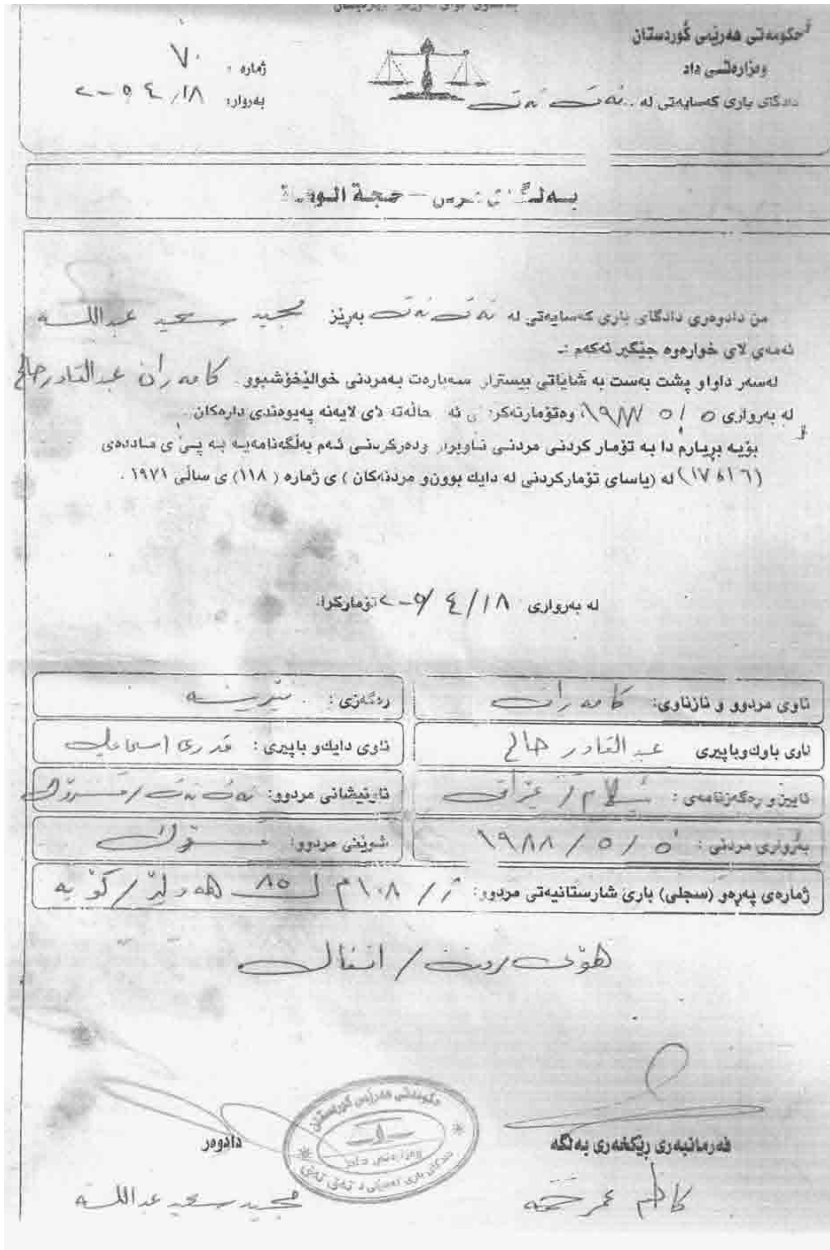 حکومەتی هەرێمی کوردستان
وەزارەتی داد
دادگای باری کەسایەتی لە . تەق تەق
ژمارە : ٧٠
بەروار: ٢٠٠٩/٤/١٨
بەڵگەی مردن - حجة الوفاة
من دادوەری دادگای باری کەسایەتی لە تەق تەق بەڕێز مجيد سعيد عبدالله
ئەمەی لای خوارەوە جێگیر ئەکەم :ـ
لەسەر داواو پشت بەست بە شایاتی بیستراو سەبارەت بەمردنی خوالێخۆشبوو . کامەران عبدالقادر صالح
لە بەرواری ٥ / ٥ / ١٩٨٨ وەتۆمارنەکردنی ئەم حاڵەتە لای لایەنە پەیوەندی دارەکان .
بۆیە بڕیارم دا بە تۆمار کردنی مردنی ناوبراو ودەرکردنی ئەم بەڵگەنامەیە بە پێ ی ماددەی
لە (یاسای تۆمارکردنی لە دایك بوون و مردنەکان ) ی ژمارە ( ١١٨ ) ی ساڵی ١٩٧١ .
لە بەرواری ٢٠٠٩/٤/١٨ تۆمارکرا.
ناوی مردوو و نازناوی: کامەران
ڕەگەزی : نێرینە
ناوی باوك وباپیری عبدالقادر صالح
ناوی دایك و باپیری : قدري اسماعيل
ئایین و ڕەگەزنامەی : ئیسلام / عێراق
ناونیشانی مردوو: تەق تەق /
بەرواری مردنی : ٥ / ٥ / ١٩٨٨
شوێنی مردوو:
ژمارەی پەڕەو (سجلی) باری شارستانیەتی مردوو: / ١٠٨ م ٨٥ هەولێر / کۆیە
هۆی مردن / انفال
فەرمانبەری ڕێکخەری بەڵگە
دادوەر
کاظم عمر
مجيد سعيد عبدالله
حکومەتی هەرێمی کوردستان
وەزارەتی داد
دادگای باری کەسێتی لە تەق تەق